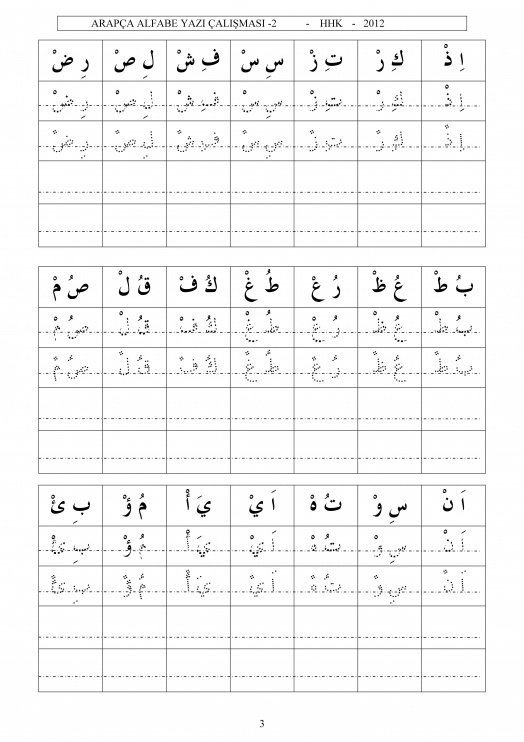 ARAPÇA ALFABE YAZI ÇALIŞMASI -2 - HHK - 2012
اِ ذْ كِ رْ تِ زْ سِ سْ فِ شْ لِ صْ رِ ضْ
اِ ذْ كِ رْ تِ زْ سِ سْ فِ شْ لِ صْ رِ ضْ
اِ ذْ كِ رْ تِ زْ سِ سْ فِ شْ لِ صْ رِ ضْ
بُ طْ عُ ظْ رُ عْ طُ غْ كُ فْ قُ لْ صُ مْ
بُ طْ عُ ظْ رُ عْ طُ غْ كُ فْ قُ لْ صُ مْ
بُ طْ عُ ظْ رُ عْ طُ غْ كُ فْ قُ لْ صُ مْ
اَ نْ سِ وْ تُ هْ اَ يْ يَ أْ مُ ؤْ بِ ئْ
اَ نْ سِ وْ تُ هْ اَ يْ يَ أْ مُ ؤْ بِ ئْ
اَ نْ سِ وْ تُ هْ اَ يْ يَ أْ مُ ؤْ بِ ئْ
3